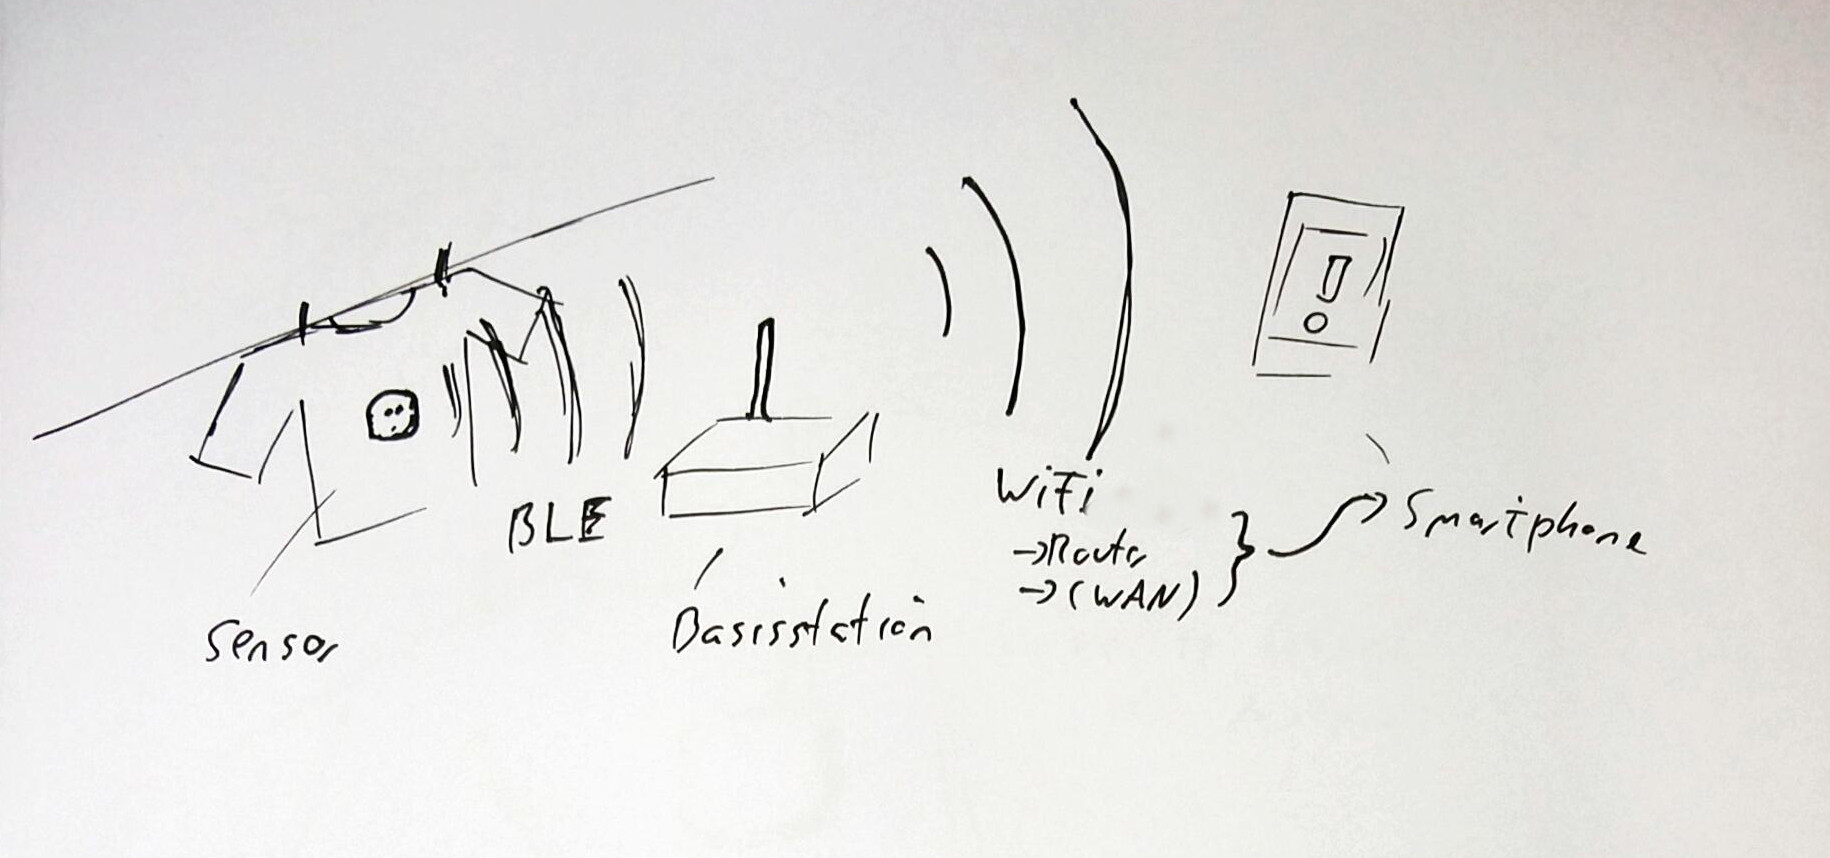 BLE
Sensor
Basisstation
WiFi
→Router
→(WAN)
Smartphone